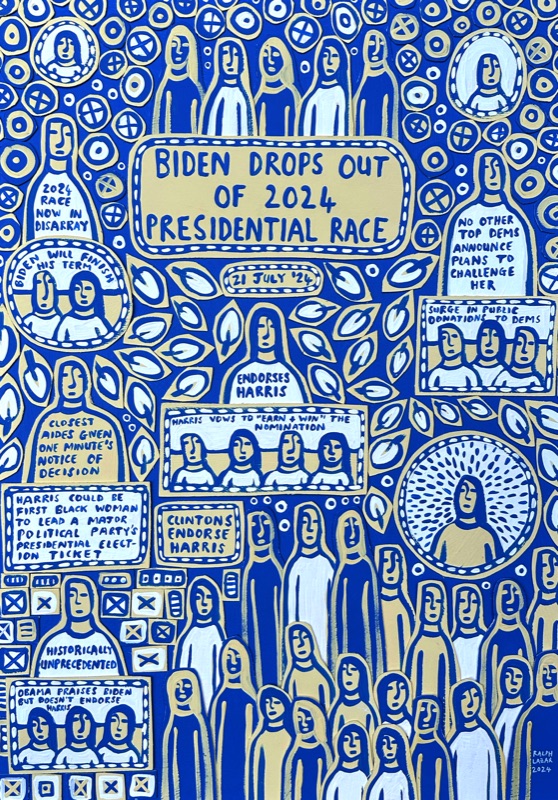 BIDEN DROPS OUT
OF 2024
PRESIDENTIAL RACE
21 JULY '24
2024
RACE
NOW IN
DISARRAY
NO OTHER
TOP DEMS
ANNOUNCE
PLANS TO
CHALLENGE
HER
BIDEN WILL FINISH
HIS TERM
SURGE IN PUBLIC
DONATIONS TO DEMS
ENDORSES
HARRIS
HARRIS VOWS TO "EARN + WIN" THE
NOMINATION
CLOSEST
AIDES GIVEN
ONE MINUTE'S
NOTICE OF
DECISION
HARRIS COULD BE
FIRST BLACK WOMAN
TO LEAD A MAJOR
POLITICAL PARTY'S
PRESIDENTIAL ELECT-
ION TICKET
CLINTONS
ENDORSE
HARRIS
HISTORICALLY
UNPRECEDENTED
OBAMA PRAISES BIDEN
BUT DOESN'T ENDORSE
HARRIS
RALPH
LAZAR
2024